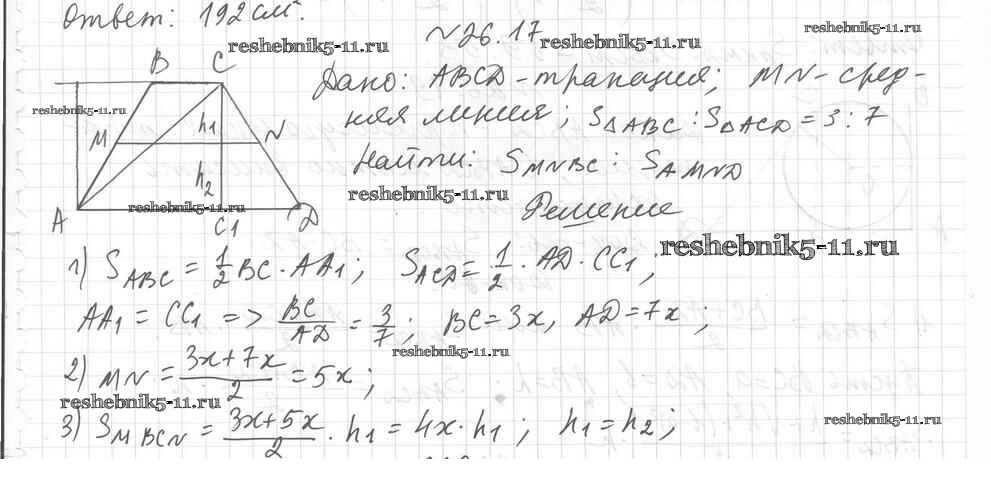 Ответ: 192 см².
№26.17
reshebnik5-11.ru
reshebnik5-11.ru
reshebnik5-11.ru
B C
Дано: ABCD-трапеция; MN-сред-
reshebnik5-11.ru
няя линия; S△ABC : S△ACD = 3 : 7
M h₁ N
Найти: SMNBC : SAMND
h₂
reshebnik5-11.ru
reshebnik5-11.ru
Решение
A C1 D
reshebnik5-11.ru
1) SABC = 1/2 BC · AA₁; SACD = 1/2 · AD · CC₁;
AA₁ = CC₁ => BC/AD = 3/7; BC = 3x, AD = 7x;
reshebnik5-11.ru
2) MN = (3x+7x)/2 = 5x;
reshebnik5-11.ru
reshebnik5-11.ru
3) SMBCN = (3x+5x)/2 · h₁ = 4x · h₁; h₁ = h₂;